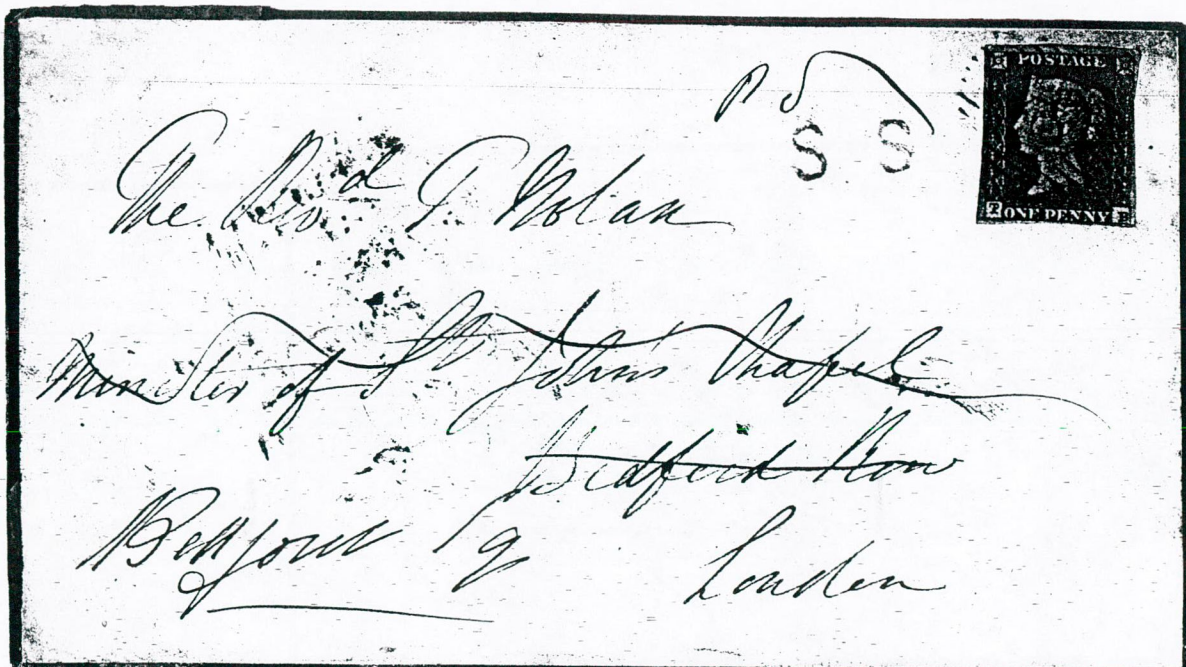 POSTAGE
S S
ONE PENNY
The Revd T. Nolan
Minister of St John's Chapel
Bedford Row
London